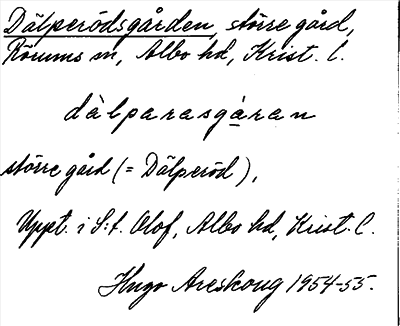 Dälperödsgården, större gård,
Rörums sn, Albo hd, Krist. l.
dàlparasgạran
större gård (= Dälperöd),
Uppt. i S:t. Olof, Albo hd, Krist. l.
Hugo Areskoug 1954-55.